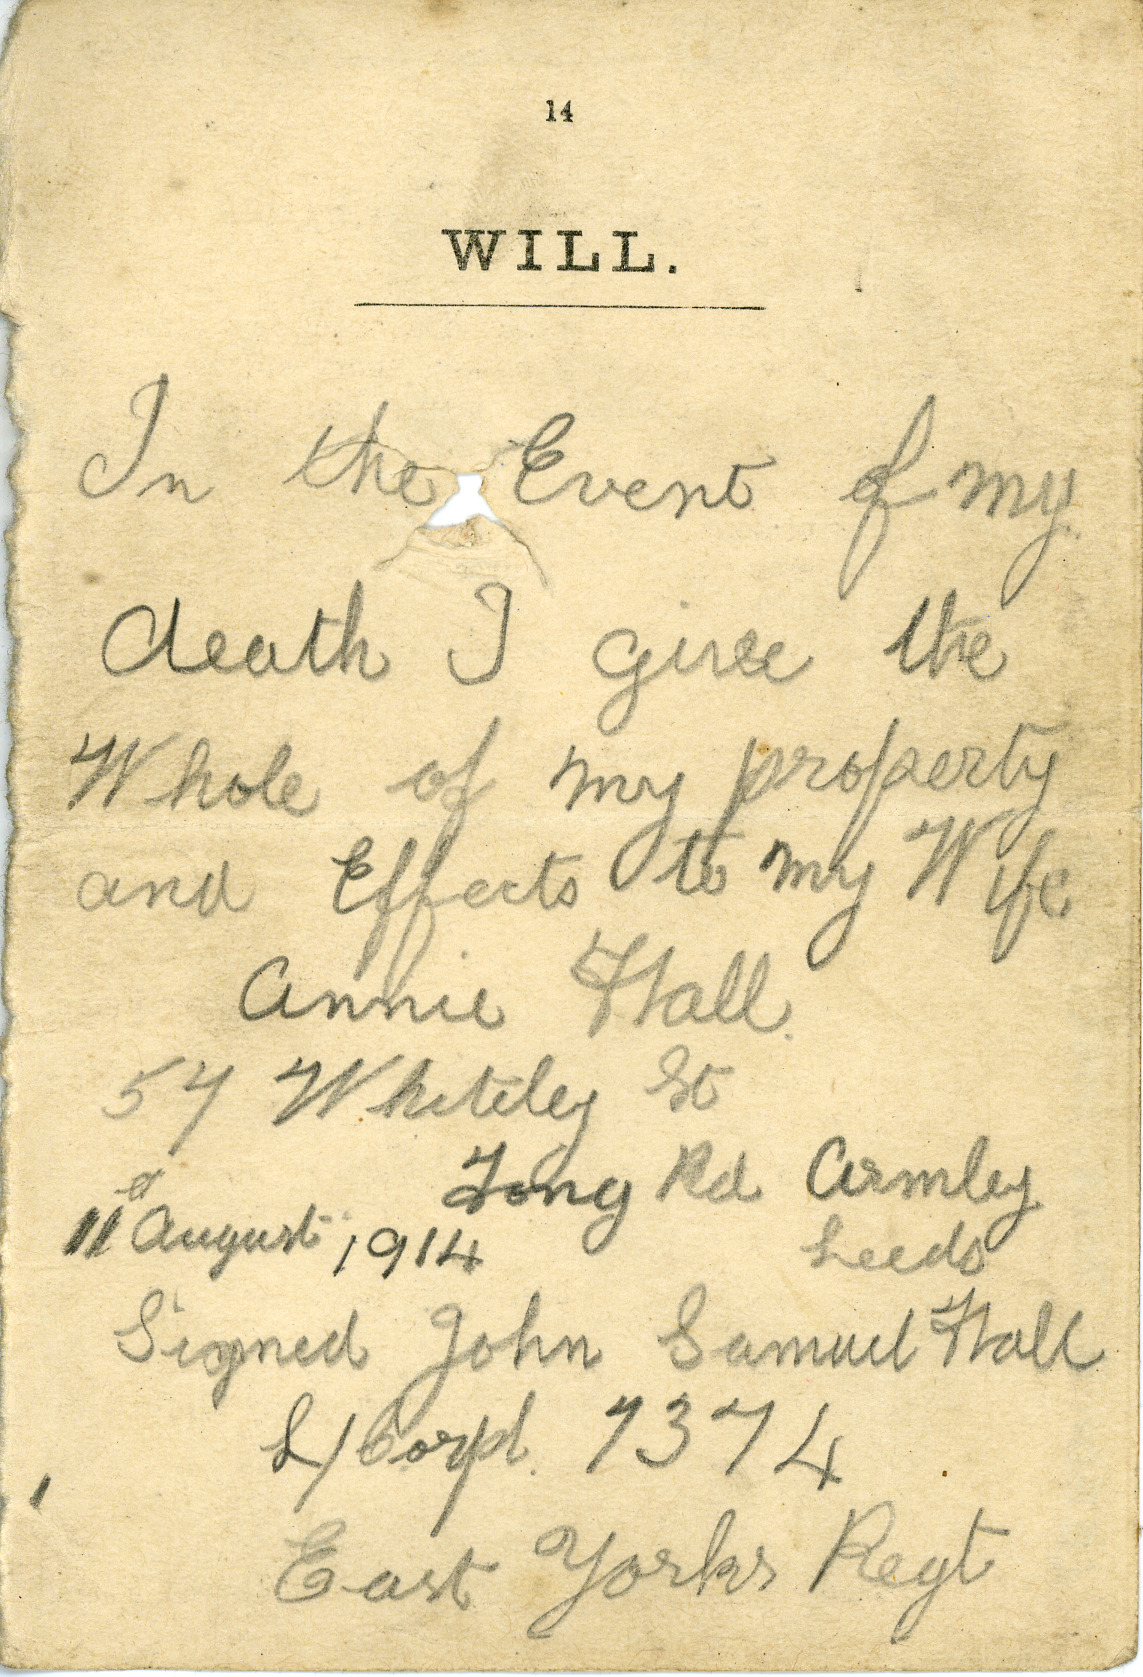 14
WILL.
In the Event of my
death I give the
Whole of my property
and Effects to my Wife
Annie Hall.
57 Whiteley St
Tong Rd Armley
Leeds
11 August 1914
Signed John Samuel Hall
L/Corpl. 7374
East Yorks Regt